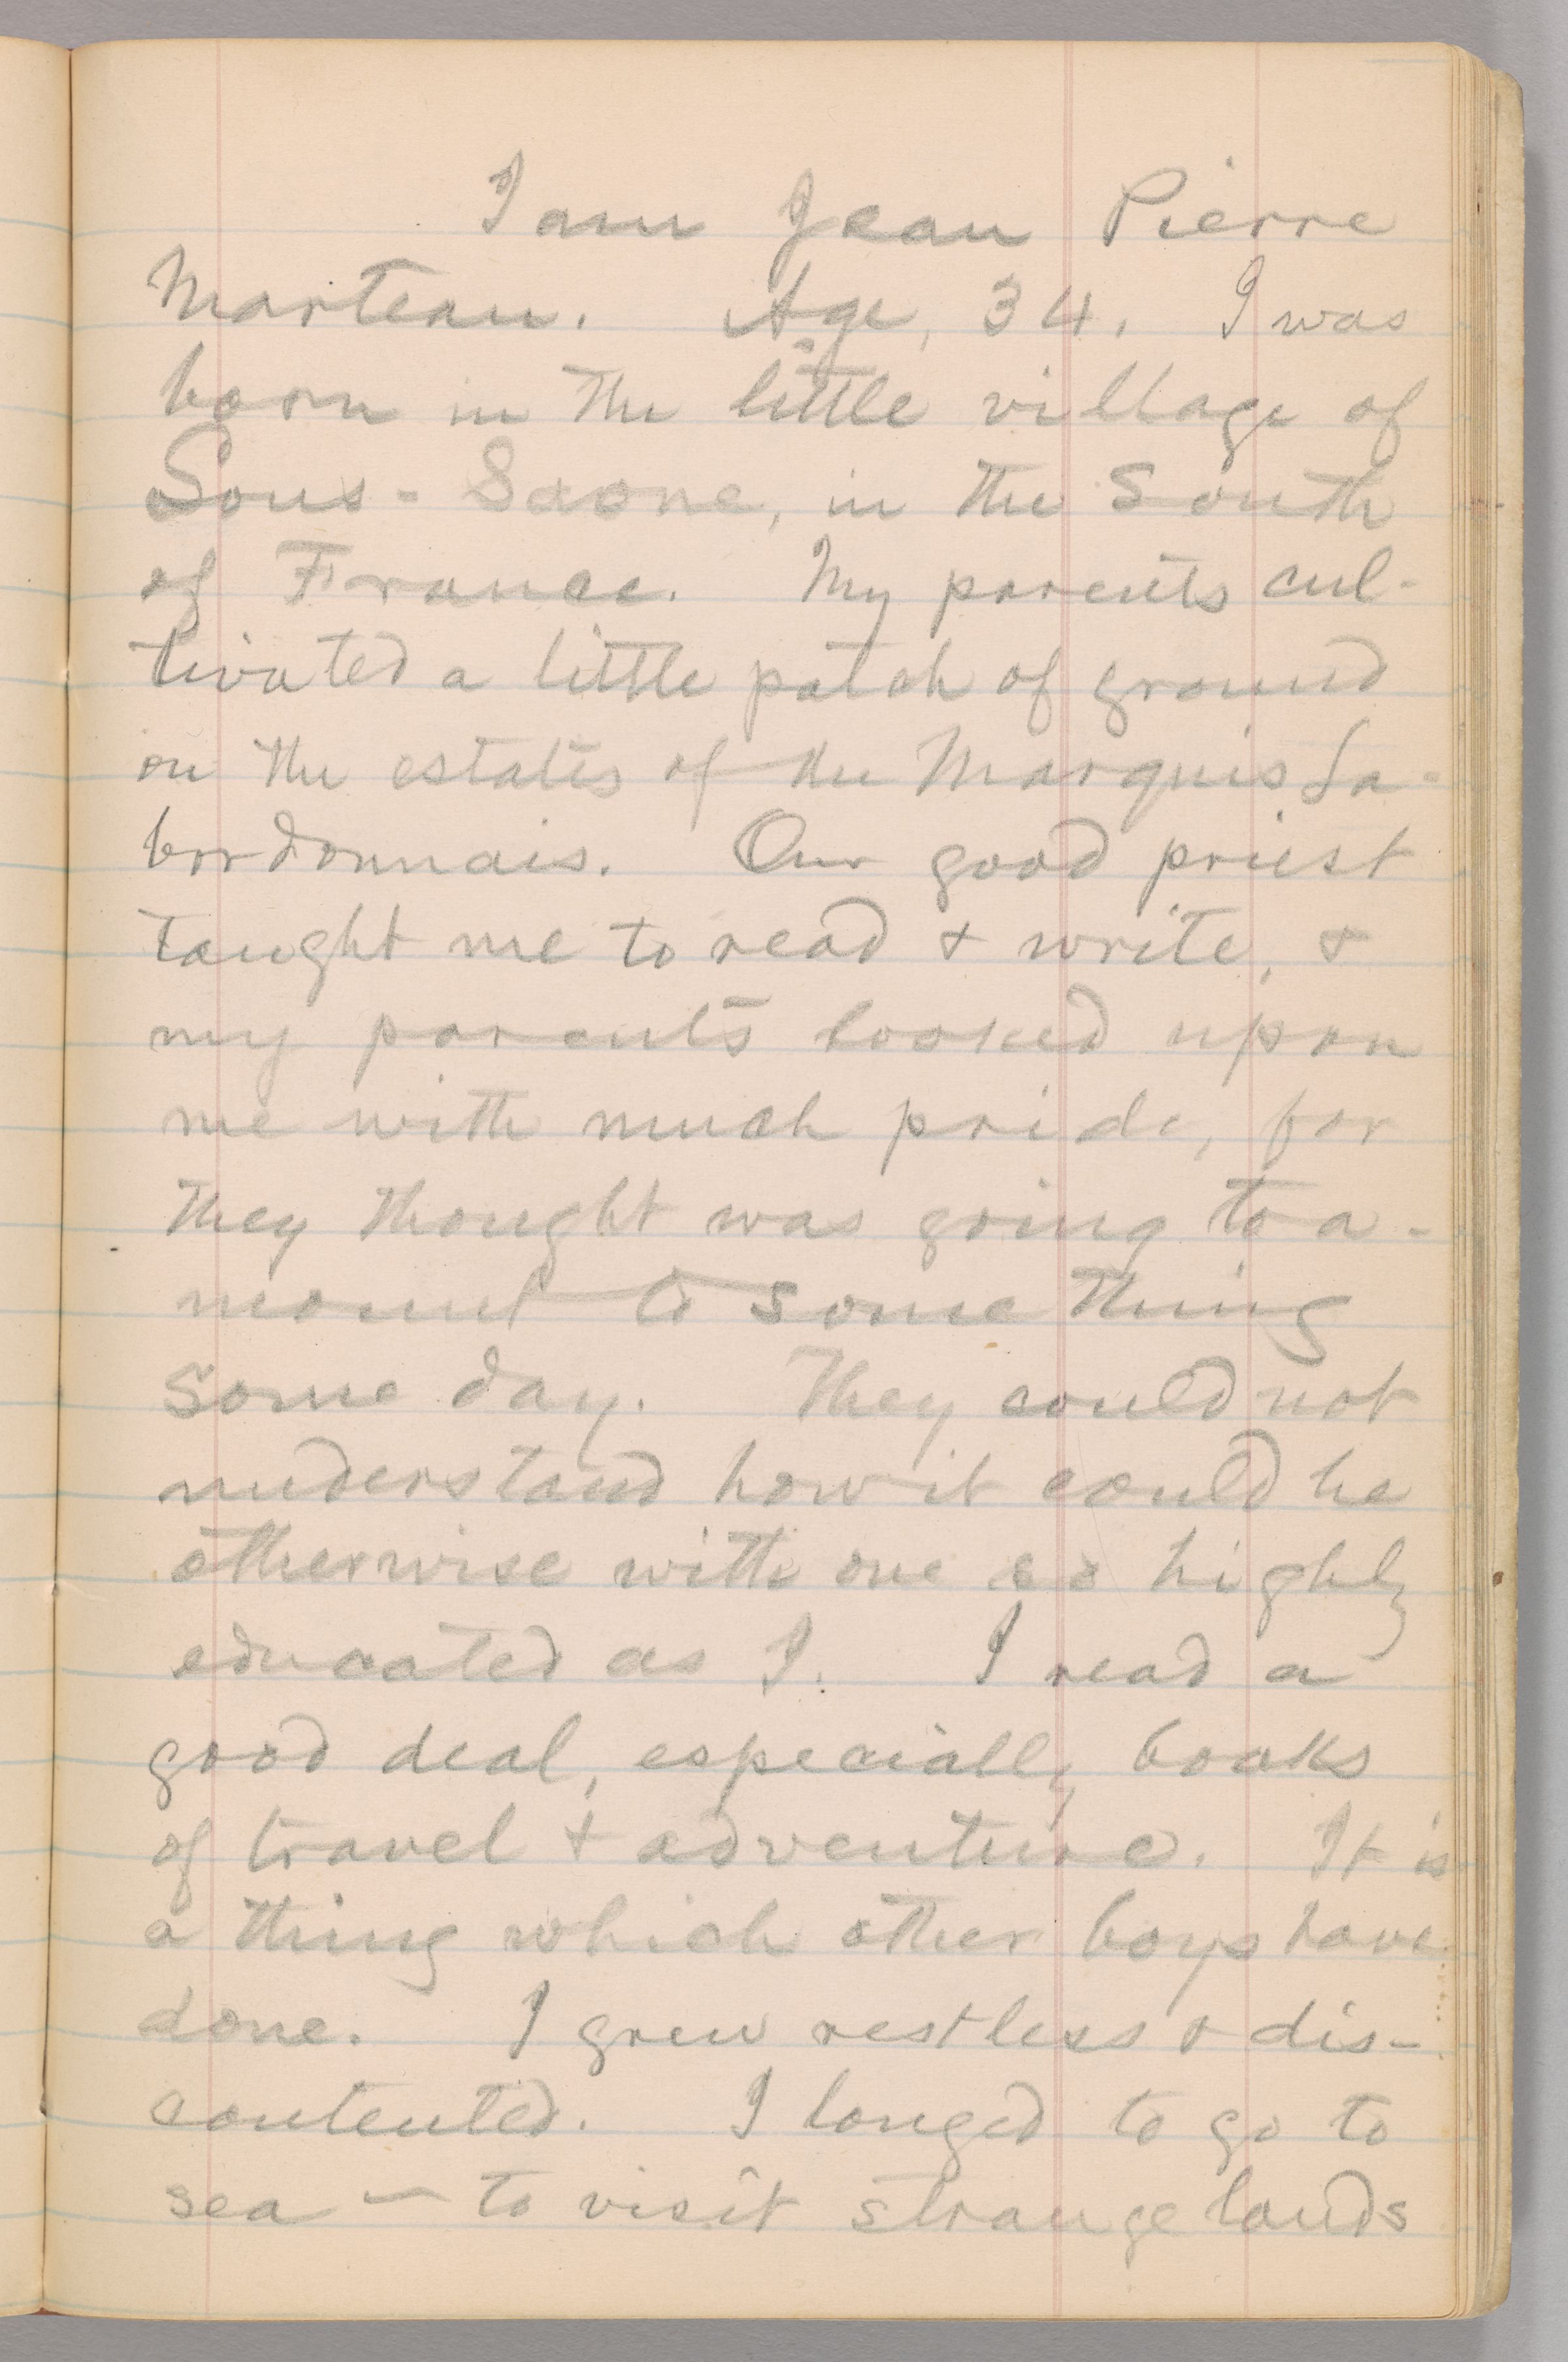 I am Jean Pierre
Marteau. Age, 34. I was
born in the little village of
Sous-Saone, in the South
of France. My parents cul-
tivated a little patch of ground
on the estates of the Marquis La-
bordonnais. Our good priest
taught me to read & write, &
my parents looked upon
me with much pride, for
they thought was going to a-
mount to something
some day. They could not
understand how it could be
otherwise with one so highly
educated as I. I read a
good deal, especially books
of travel & adventure. It is
a thing which other boys have
done. I grew restless & dis-
contented. I longed to go to
sea — to visit strange lands